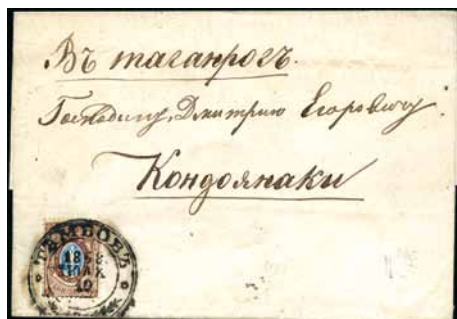 Въ таганрогъ.
Господину, Дмитрию Егоровичу
Кондоянаки
ТАМБОВЪ
18